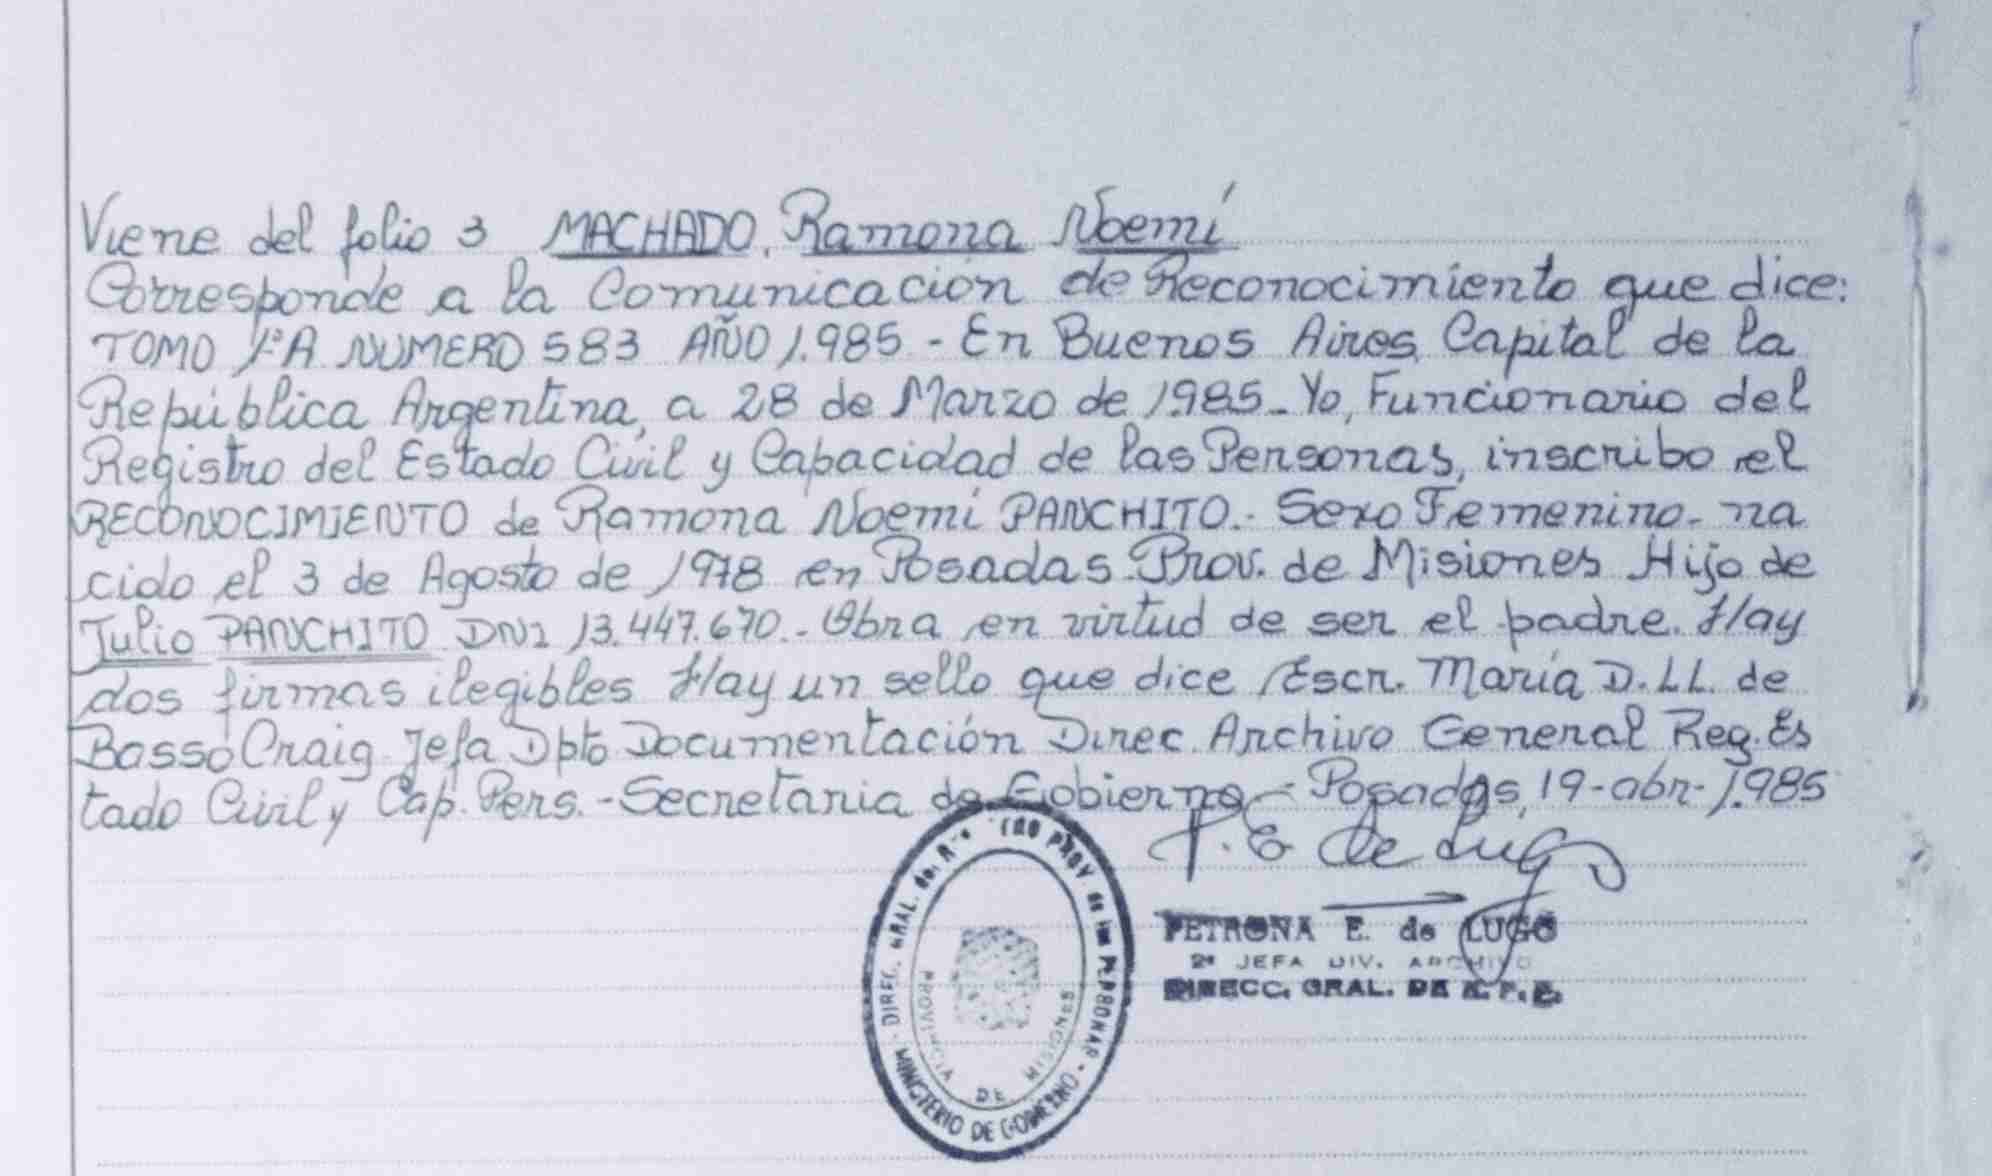 Viene del folio 3 MACHADO, Ramona Noemí
Corresponde a la Comunicación de Reconocimiento que dice:
TOMO 1ºA NUMERO 583 AÑO 1.985 - En Buenos Aires, Capital de la
República Argentina, a 28 de Marzo de 1.985 - Yo, Funcionario del
Registro del Estado Civil y Capacidad de las Personas, inscribo el
RECONOCIMIENTO de Ramona Noemí PANCHITO.- Sexo Femenino - na
cido el 3 de Agosto de 1978 en Posadas. Prov. de Misiones Hijo de
Julio PANCHITO DNI 13.447.670.- Obra en virtud de ser el padre. Hay
dos firmas ilegibles Hay un sello que dice Escr. María D. LL. de
Basso Craig Jefa Dpto Documentación Direc. Archivo General Reg. Es
tado Civil y Cap. Pers. - Secretaria de Gobierno - Posadas, 19 - abr - 1.985
P. E de Lugo
PETRONA E. de LUGO
2ª JEFA DIV. ARCHIVO
DIRECC. GRAL. DE R. P. P.
DIREC. GRAL. del PROV. de las PERSONAS - MINISTERIO DE GOBIERNO -
PROVINCIA DE MISIONES